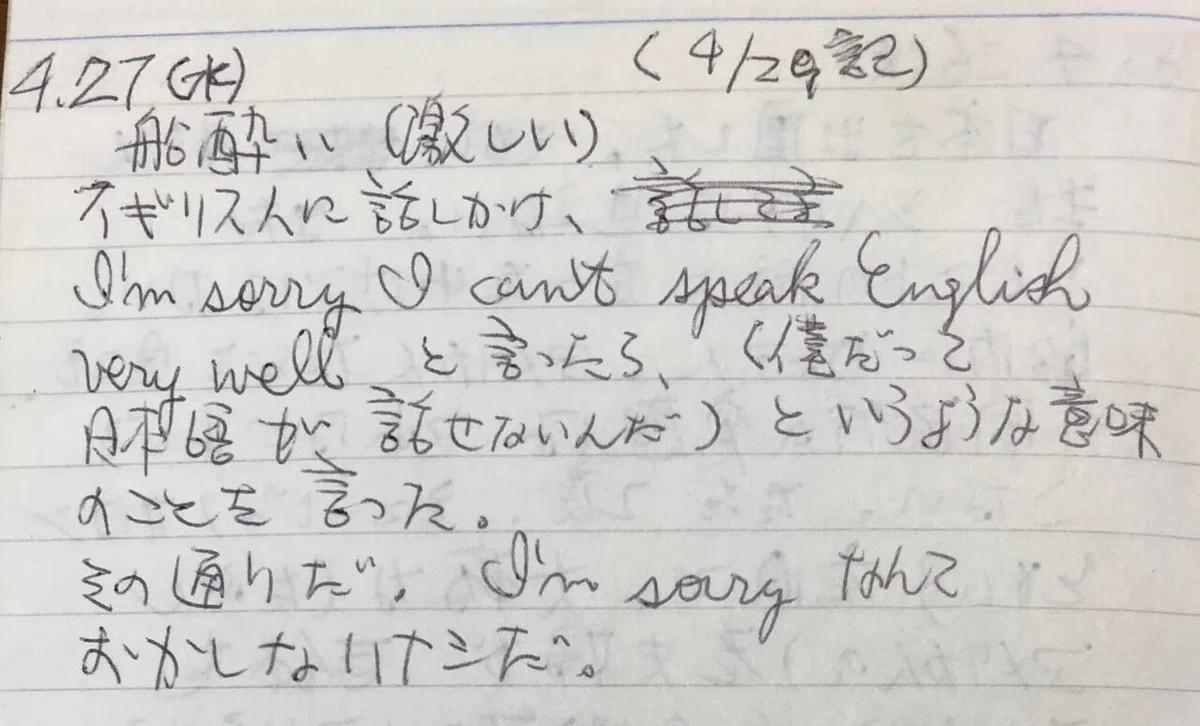 4.27(水) (4/29記)
船酔い (激しい)
イギリス人に話しかけ、
I'm sorry I can't speak English
very well と言ったら、(僕だって
日本語が話せないんだ)というような意味
のことを言った。
その通りだ。I'm sorry なんて
おかしなハナシだ。